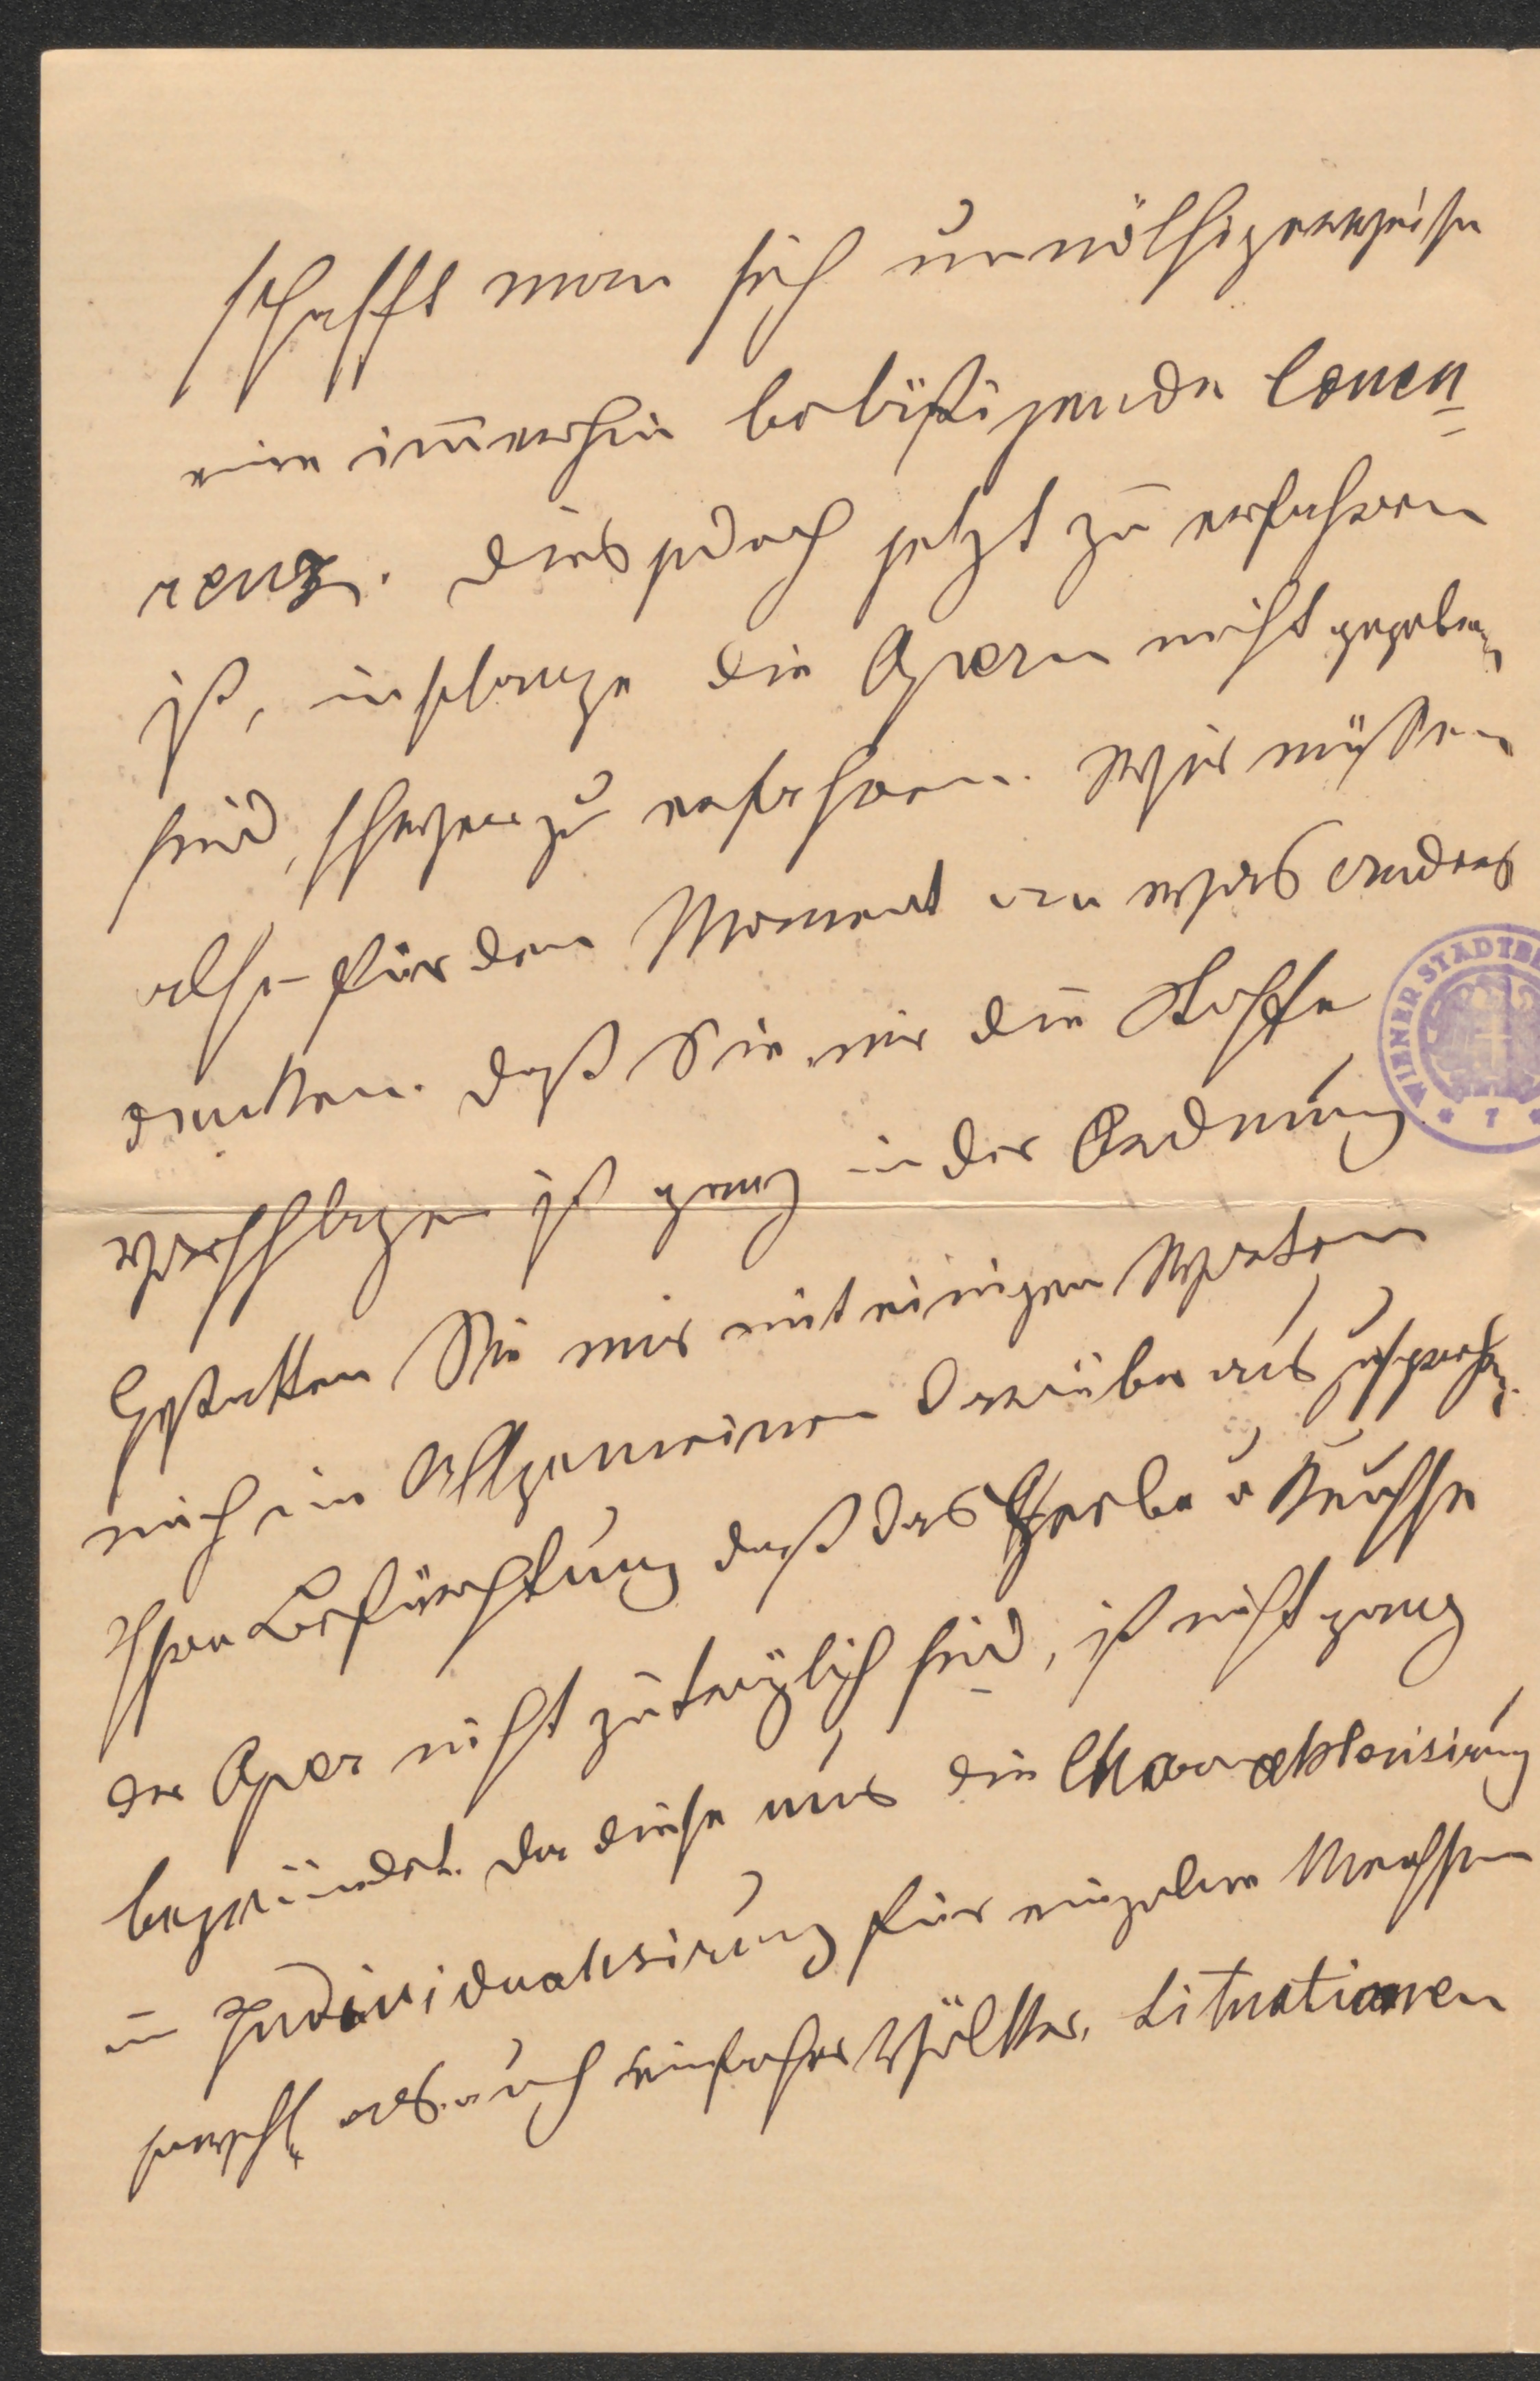 schafft man sich unnöthigerweise
eine im̄erhin belästigende Concu=
renz. Dies jedoch jetzt zu erfahren
ist, insolange die Opern nicht gegeben
sind, schwer zu erfahren. Wir müssen
also für den Moment an etwas andres
denken. Daß Sie mir die Stoffe
vorschlagen ist ganz in der Ordnung
Gestatten Sie mir mit einigen Worten
mich im Allgemeinen darüber auszusprechen.
Ihre Befürchtung daß das Herbe u Keusche
der Oper nicht zuträglich sind, ist nicht ganz
begründet. Da diese nur die Charakterisirung
u Individualisirung für einzelne Menschen
sowohl als auch einfacher Völker, Situationen
WIENER STADTBI
* 7 *